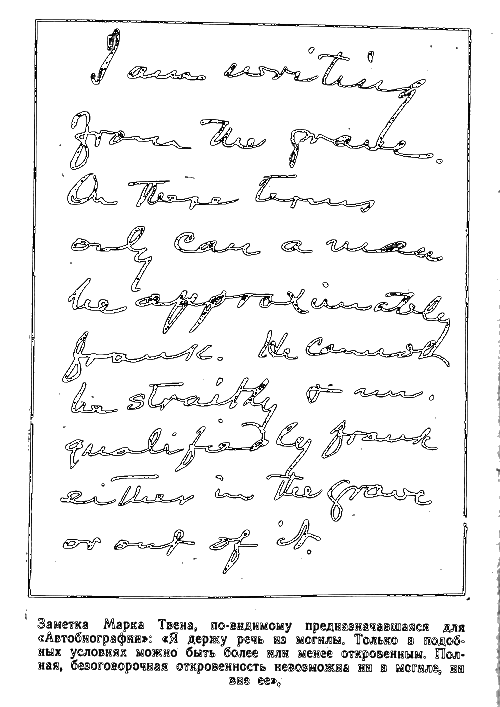 I am writing
from the grave.
On these terms
only can a man
be approximately
frank. He cannot
be straitly & un-
qualifiedly frank
either in the grave
or out of it.
Заметка Марка Твена, по-видимому предназначавшаяся для
«Автобиографии»: «Я держу речь из могилы. Только в подоб-
ных условиях можно быть более или менее откровенным. Пол-
ная, безоговорочная откровенность невозможна ни в могиле, ни
вне ее».